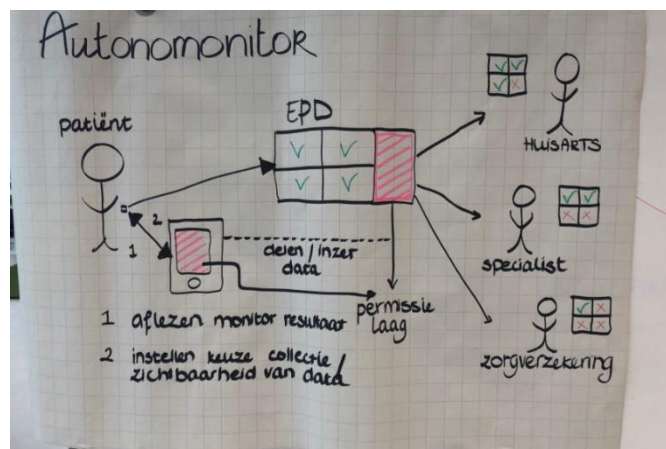 Autonomonitor
patiënt
EPD
HUISARTS
2
1
delen / inzer
data
specialist
permissie
laag
1 aflezen monitor resultaat
2 instellen keuze collectie /
zichtbaarheid van data
zorgverzekering